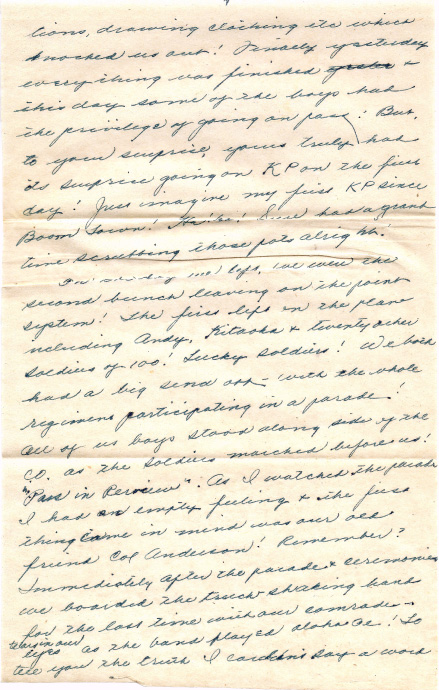 tions, drawing clothing etc which
knocked us out! Finally yesterday
everything was finished &
this day some of the boys had
the privilege of going on pass! But,
to your surprise, yours truly had
its surprise going on KP on the first
day! Just imagine my first KP since
Boom Town! Ha! Ha! Sure had a grand
time scrubbing those pots alright!
day we left, we were the
second bunch leaving on the point
system! The first left in the plane
including Andy, Kitaoka & twenty other
soldiers of 100! Lucky soldiers! We both
had a big send off with the whole
regiment participating in a parade!
All of us boys stood along side of the
CO. as the soldiers marched before us!
"Pass in Review". As I watched the parade
I had an empty feeling & the first
thing came in mind was our old
friend Col Anderson! Remember?
Immediately after the parade & ceremonies
we boarded the truck shaking hand
for the last time with our comrade -
tears in our
eyes as the band played aloha Oe! To
tell you the truth I couldn't say a word